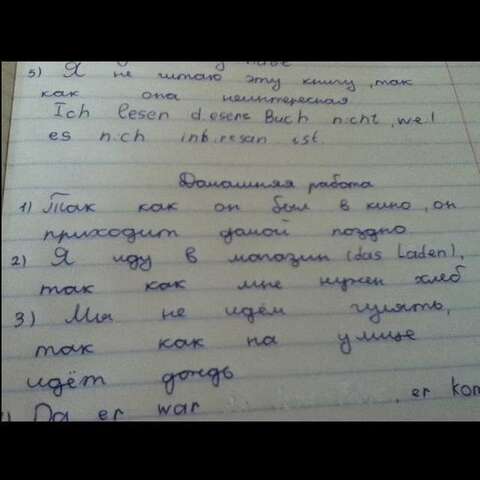 5) Я не читаю эту книгу, так
как она неинтересная
Ich lesen diesens Buch nicht, weil
es nich interesan ist.
Домашняя работа
1) Так как он был в кино, он
приходит домой поздно
2) Я иду в магазин (das Laden),
так как мне нужен хлеб
3) Мы не идём гулять,
так как на улице
идёт дождь
Da er war , er kom